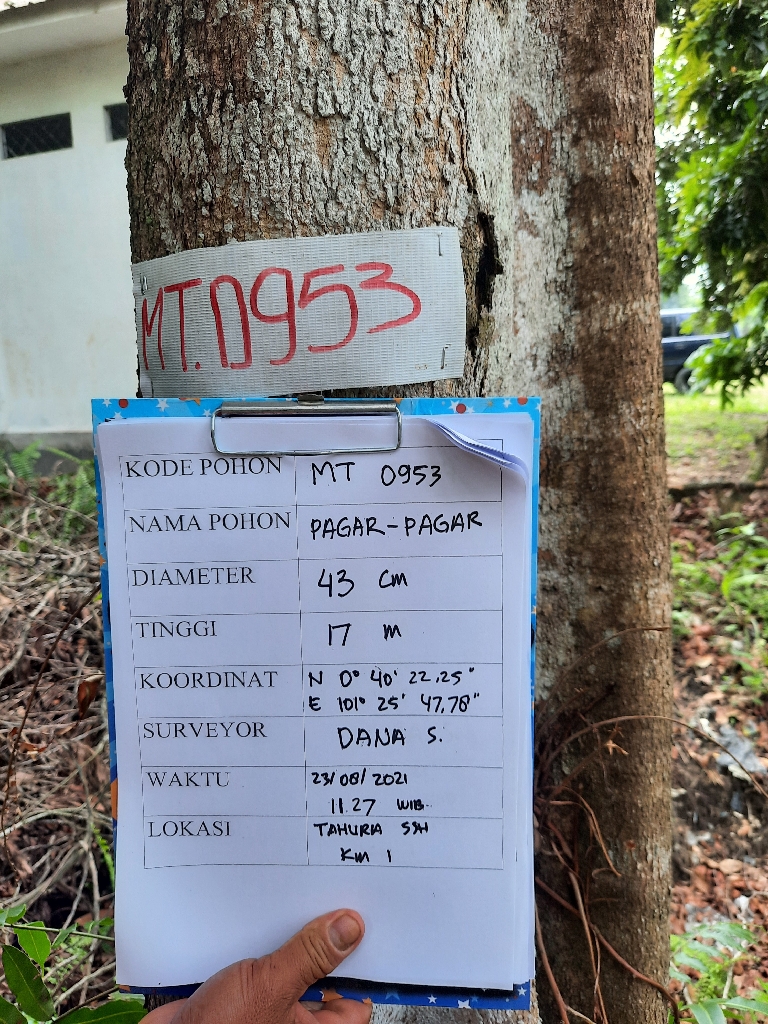 MT.0953
KODE POHON MT 0953
NAMA POHON PAGAR-PAGAR
DIAMETER 43 cm
TINGGI 17 m
KOORDINAT N 0° 40' 22,25"
E 101° 25' 47,78"
SURVEYOR DANA S.
WAKTU 23/08/2021
11.27 WIB
LOKASI TAHURA SSH
Km 1